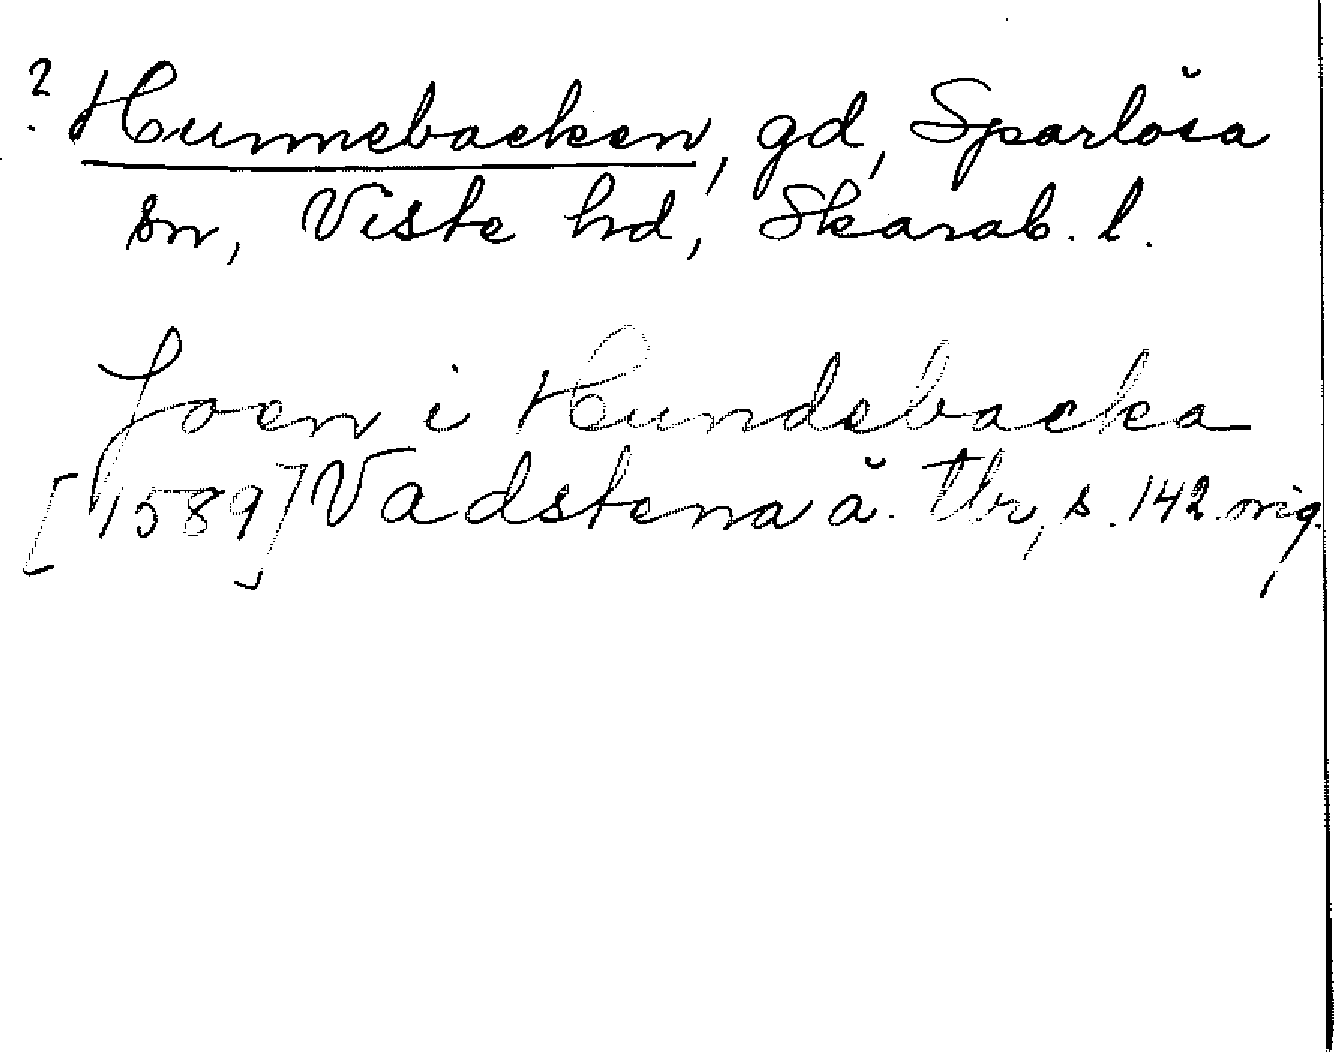 ? Hunnebacken, gd, Sparlösa
sn, Viste hd, Skarab. l.
Joen i Hundebacka
[1589] Vadstena ä. tbr, s. 142 orig.